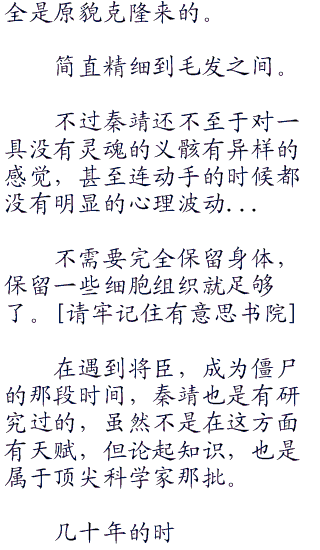 全是原貌克隆来的。
简直精细到毛发之间。
不过秦靖还不至于对一
具没有灵魂的义骸有异样的
感觉，甚至连动手的时候都
没有明显的心理波动...
不需要完全保留身体，
保留一些细胞组织就足够
了。[请牢记住有意思书院]
在遇到将臣，成为僵尸
的那段时间，秦靖也是有研
究过的，虽然不是在这方面
有天赋，但论起知识，也是
属于顶尖科学家那批。
几十年的时